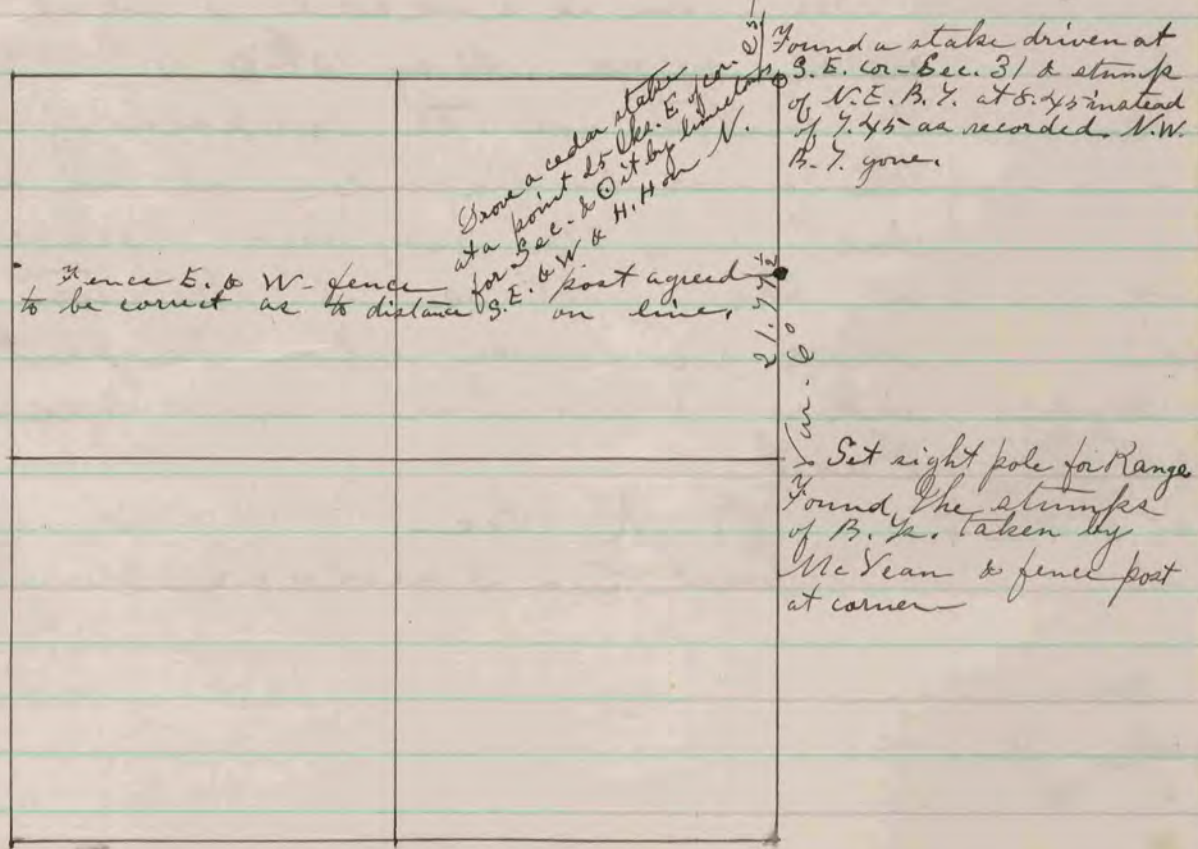 Found a stake driven at
S. E. cor- Sec. 31 & stump
of N. E. B. T. at 8.45 instead
of 7.45 as recorded. N.W.
B. T. gone.
Drove a cedar stake
at a point 25 lks. E of cor.
for Sec. & it by limestones
S. E. & W & H. H on N.
Fence E. & W- fence post agreed
to be correct as to distance on line.
21.77 1/2
Var. 6°
Set sight pole for Range
Found the stumps
of B. Ts. taken by
McVean & fence post
at corner